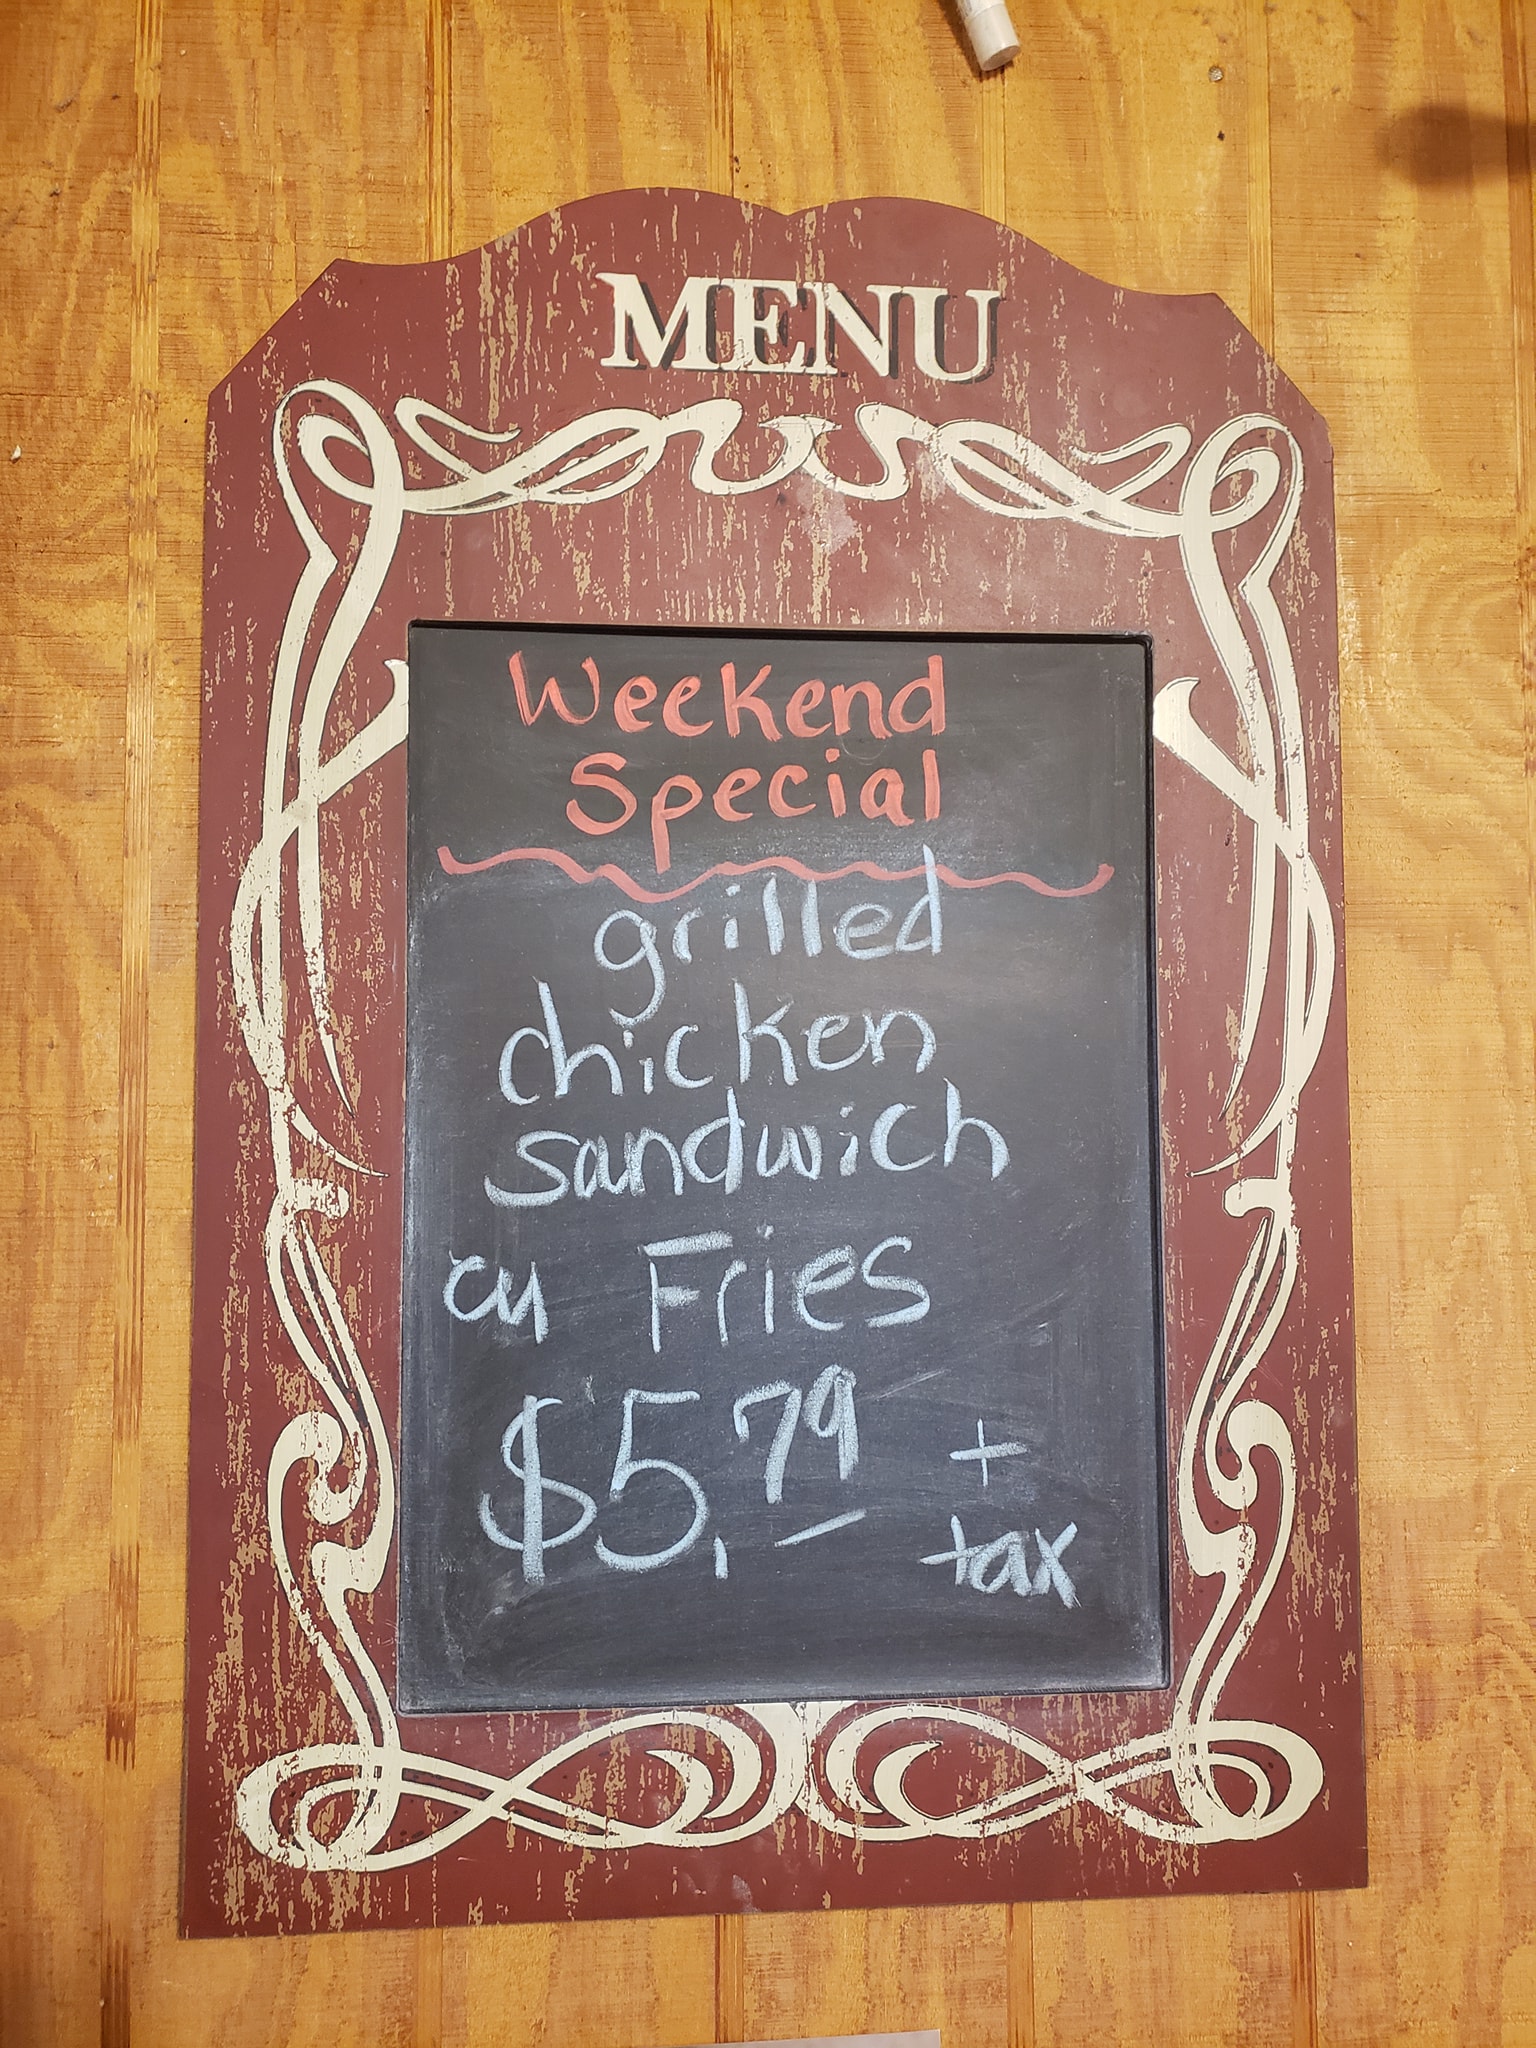 MENU
Weekend
Special
grilled
chicken
sandwich
w Fries
$5.79 +
tax